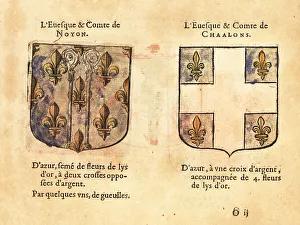 L'Euesque & Comte de
NOYON.
D'azur, semé de fleurs de lys
d'or, à deux crosses oppo-
sées d'argent.
Par quelques vns, de gueulles.
L'Euesque & Comte de
CHAALONS.
D'azur, à vne croix d'argent,
accompagnée de 4. fleurs
de lys d'or.
6 ij